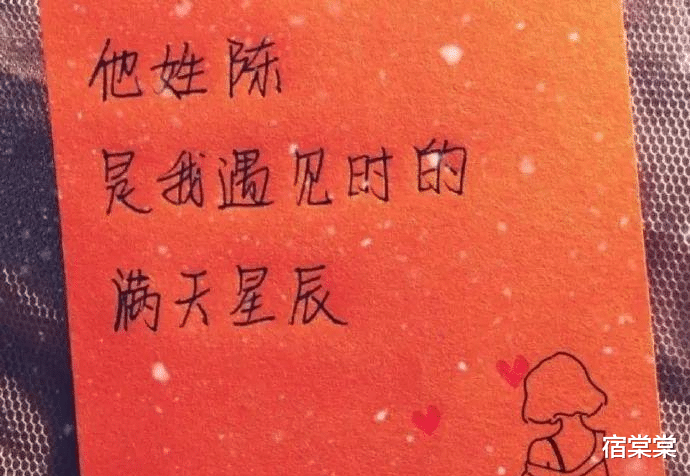 他姓陈
是我遇见时的
满天星辰
宿棠棠